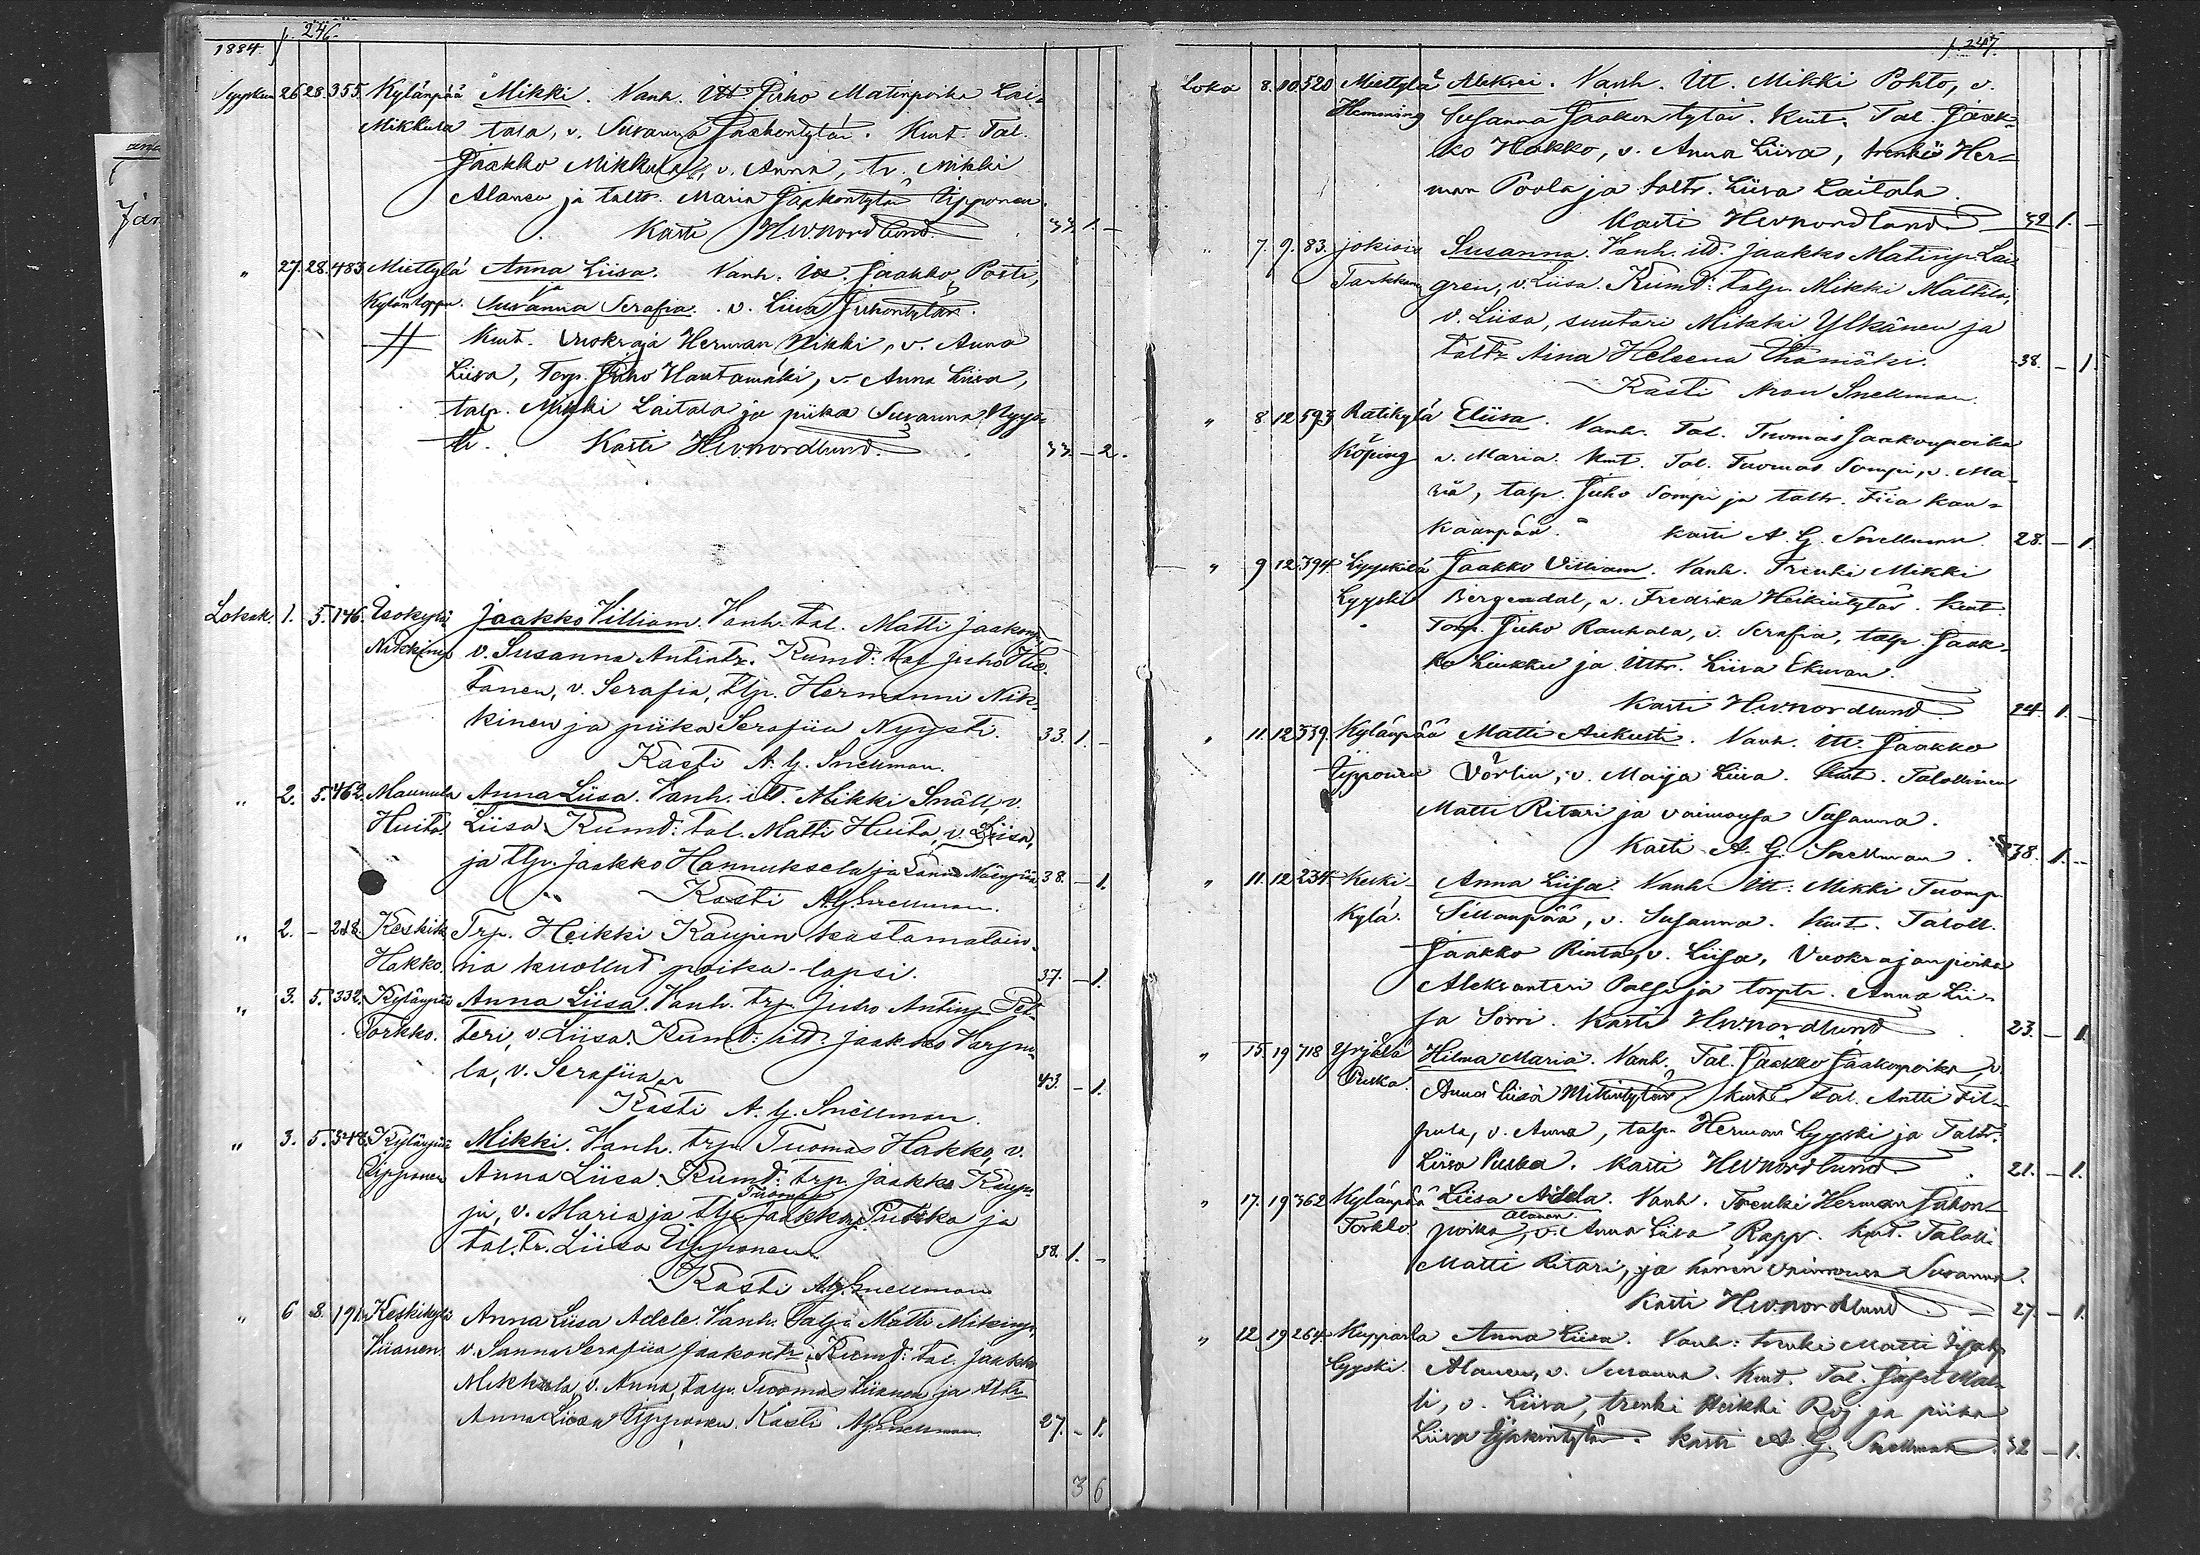 p. 246.
1884.
Syyskuu 26. 28. 355. Kylänpää Mikki. Vanh. Itt Juho Matinpoika Lai-
Mikkula tala, v. Susanna Jaakontytär. Kmt. Tal.
Jaakko Mikkula, v. Anna, tr. Mikki
Alanen ja taltr. Maria Jaakontytär Upponen.
Kasti H.W. Nordlund. 33. 1. -
" 27. 28. 483 Miettylä Anna Liisa. Vanh. Itt. Jaakko Posti,
Kyläntoppu. Susanna Serafia. v. Liisa Juhontytär.
Kmt. Vuokraaja Herman Nikki, v. Anna
Liisa, Torp. Juho Hautamäki, v. Anna Liisa,
talp. Mikki Laitala ja piika Susanna Nyys-
ti. Kasti H.W. Nordlund. 33. - 2.
Lokak. 1. 5. 146. Isokylä Jaakko Villiam. Vanh. tal. Matti Jaakonp.
Nikkinp v. Susanna Antintr. Kumd: tal Juho Hie-
tanen, v. Serafia, tlp. Hermanni Nik-
kinen ja piika Serafiia Nyysti. 33. 1. -
Kasti A. G. Snellman.
" 2. 5. 462. Maunula Anna Liisa. Vanh. itt. Mikki Snäll, v.
Huita Liisa Kumd: tal. Matti Huita, v. Liisa,
ja tlp. Jaakko Hannuksela ja Sanna Mäenpää 38. - 1.
Kasti A.G. Snellman.
" 2. - 218. Keskik. Trp. Heikki Kaupin kastamatoin-
Hakko. na kuollut poika-lapsi. 37. - 1.
" 3. 5. 332. Kylänpää Anna Liisa. Vanh. trp. Juho Antinp. Pet-
Torkko. teri, v. Liisa. Kumd: itt. Jaakko Harju-
la, v. Serafiia 43. - 1.
Kasti A. G. Snellman.
" 3. 5. 348. Kylänpää Mikki. Vanh. trp. Tuomas Hakko, v.
Upponen Anna Liisa. Kumd: trp. Jaakko Kaup-
Tuomas
pi, v. Maria ja tlp. Jaakko Puska ja
tal. tr. Liisa Upponen. 38. 1. -
Kasti A.G. Snellman
" 6 8. 191. Keskikylä Anna Liisa Adele. Vanh. talp. Matti Mikinp,
Viianen. v. Sanna Serafiia Jaakontr. Kumd: tal. Jaakko
Mikkola, v. Anna, talp. Tuomas Viianen ja tltr
Anna Liisa Upponen. Kasti A.G. Snellman 27. - 1.
3 6
p. 247.
Loka 8. 10 520 Miettylä Aleksei. Vanh. Itt. Mikki Pohto, v.
Hemming Susanna Jaakontytär. Kmt. Tal. Jaak-
ko Hakko, v. Anna Liisa, trenki Her-
man Poola ja taltr. Liisa Laitala.
Kasti H.W. Nordlund. 32 1. -
" 7. 9. 83. Jokisiv Susanna. Vanh. itt. Jaakko Matinp. Lau-
gren, v. Liisa. Kumd: talp. Mikki Mattila,
v. Liisa, suutari Mikki Ylkänen ja
taltr Aina Heleena 38. - 1.
Kasti Snellman.
" 8 12 593 Ratikylä Eliisa. Vanh. Tal. Tuomas Jaakonpoika
Köping v. Maria. Kmt. Tal. Tuomas Sompi, v. Ma-
ria, talp. Juho Sompi ja taltr. Fiia Kan-
kaanpää. Kasti A. G. Snellman. 28. - 1.
" 9 12. 394 Lyyskilä Jaakko Villiam. Vanh. Trenki Mikki
Lyyski Bergendal, v. Fredrika Heikintytär. Kmt
Torp. Juho Rauhala, v. Serafia, talp. Jaak-
ko Liukku ja Ittr. Liisa Ekman.
Kasti H.W. Nordlund. 24. 1. -
" 11. 12 339. Kylänpää Matti Aukusti. Vanh. Itt. Jaakko
Upponen Vörlin, v. Maija Liisa. Kmt. Talollinen
Matti Ritari ja vaimonsa Susanna.
Kasti A. G. Snellman. 38. 1. -
" 11. 12 234 Keski- Anna Liisa. Vanh. Itt. Mikki Tuomp.
kylä. Sillanpää, v. Susanna. Kmt. Taloll.
Jaakko Rinta, v. Liisa, Vuokraajanpoika
Aleksanteri Palsi ja torptr. Anna Lii-
sa Sorri. Kasti H.W. Nordlund 23. - 1.
" 15. 19 718 Yrjälä Hilma Maria. Vanh. Tal. Jaakko Jaakonpoika, v.
Puska. Anna Liisa Mikintytär. Kmt. Tal. Antti Fil-
pula, v. Anna, talp. Herman Lyyski ja Taltr.
Liisa Puska. Kasti H.W. Nordlund 21. - 1.
" 17. 19 362 Kylänpää Liisa Adela. Vanh. Trenki Herman Jakon-
Alanen
Torkko. poika, v. Anna Liisa Rapp. Kmt. Taloll.
Matti Ritari, ja hänen vaimonsa Susanna.
Kasti H.W. Nordlund. 27. - 1.
" 12 19 264 Kupparla Anna Liisa. Vanh: trenki Matti
Lyyski. Alanen, v. Susanna. Kmt. Tal. Josef Mat-
ti, v. Liisa, trenki Heikki Roj ja piika
Liisa. Kasti A. G. Snellman. 32 - 1.